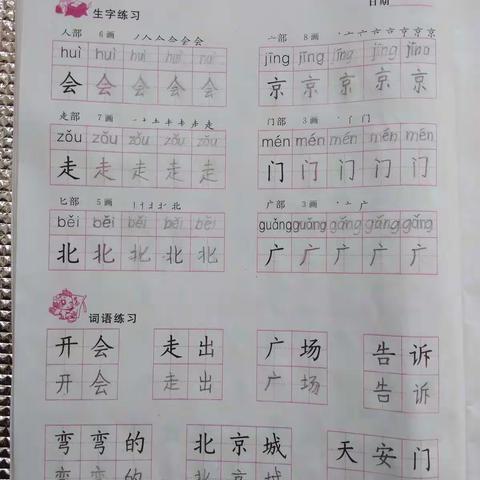 日期
生字练习
人部 6画 丿 人 亼 会 会 会
亠部 8画
huì huì huì huì huì
jīng jīng jīng jīng jīng
会 会 会 会 会
京 京 京 京 京
走部 7画
门部 3画 丶 门 门
zǒu zǒu zǒu zǒu zǒu
mén mén mén mén mén
走 走 走 走 走
门 门 门 门 门
匕部 5画
广部 3画 丶 亠 广
běi běi běi běi běi
guǎng guǎng gǎng gǎng gǎng
北 北 北 北 北
广 广 广 广 广
词语练习
开会 走出 广场 告诉
开会 走出 广场 告诉
弯弯的 北京城 天安门
弯弯的 北京城